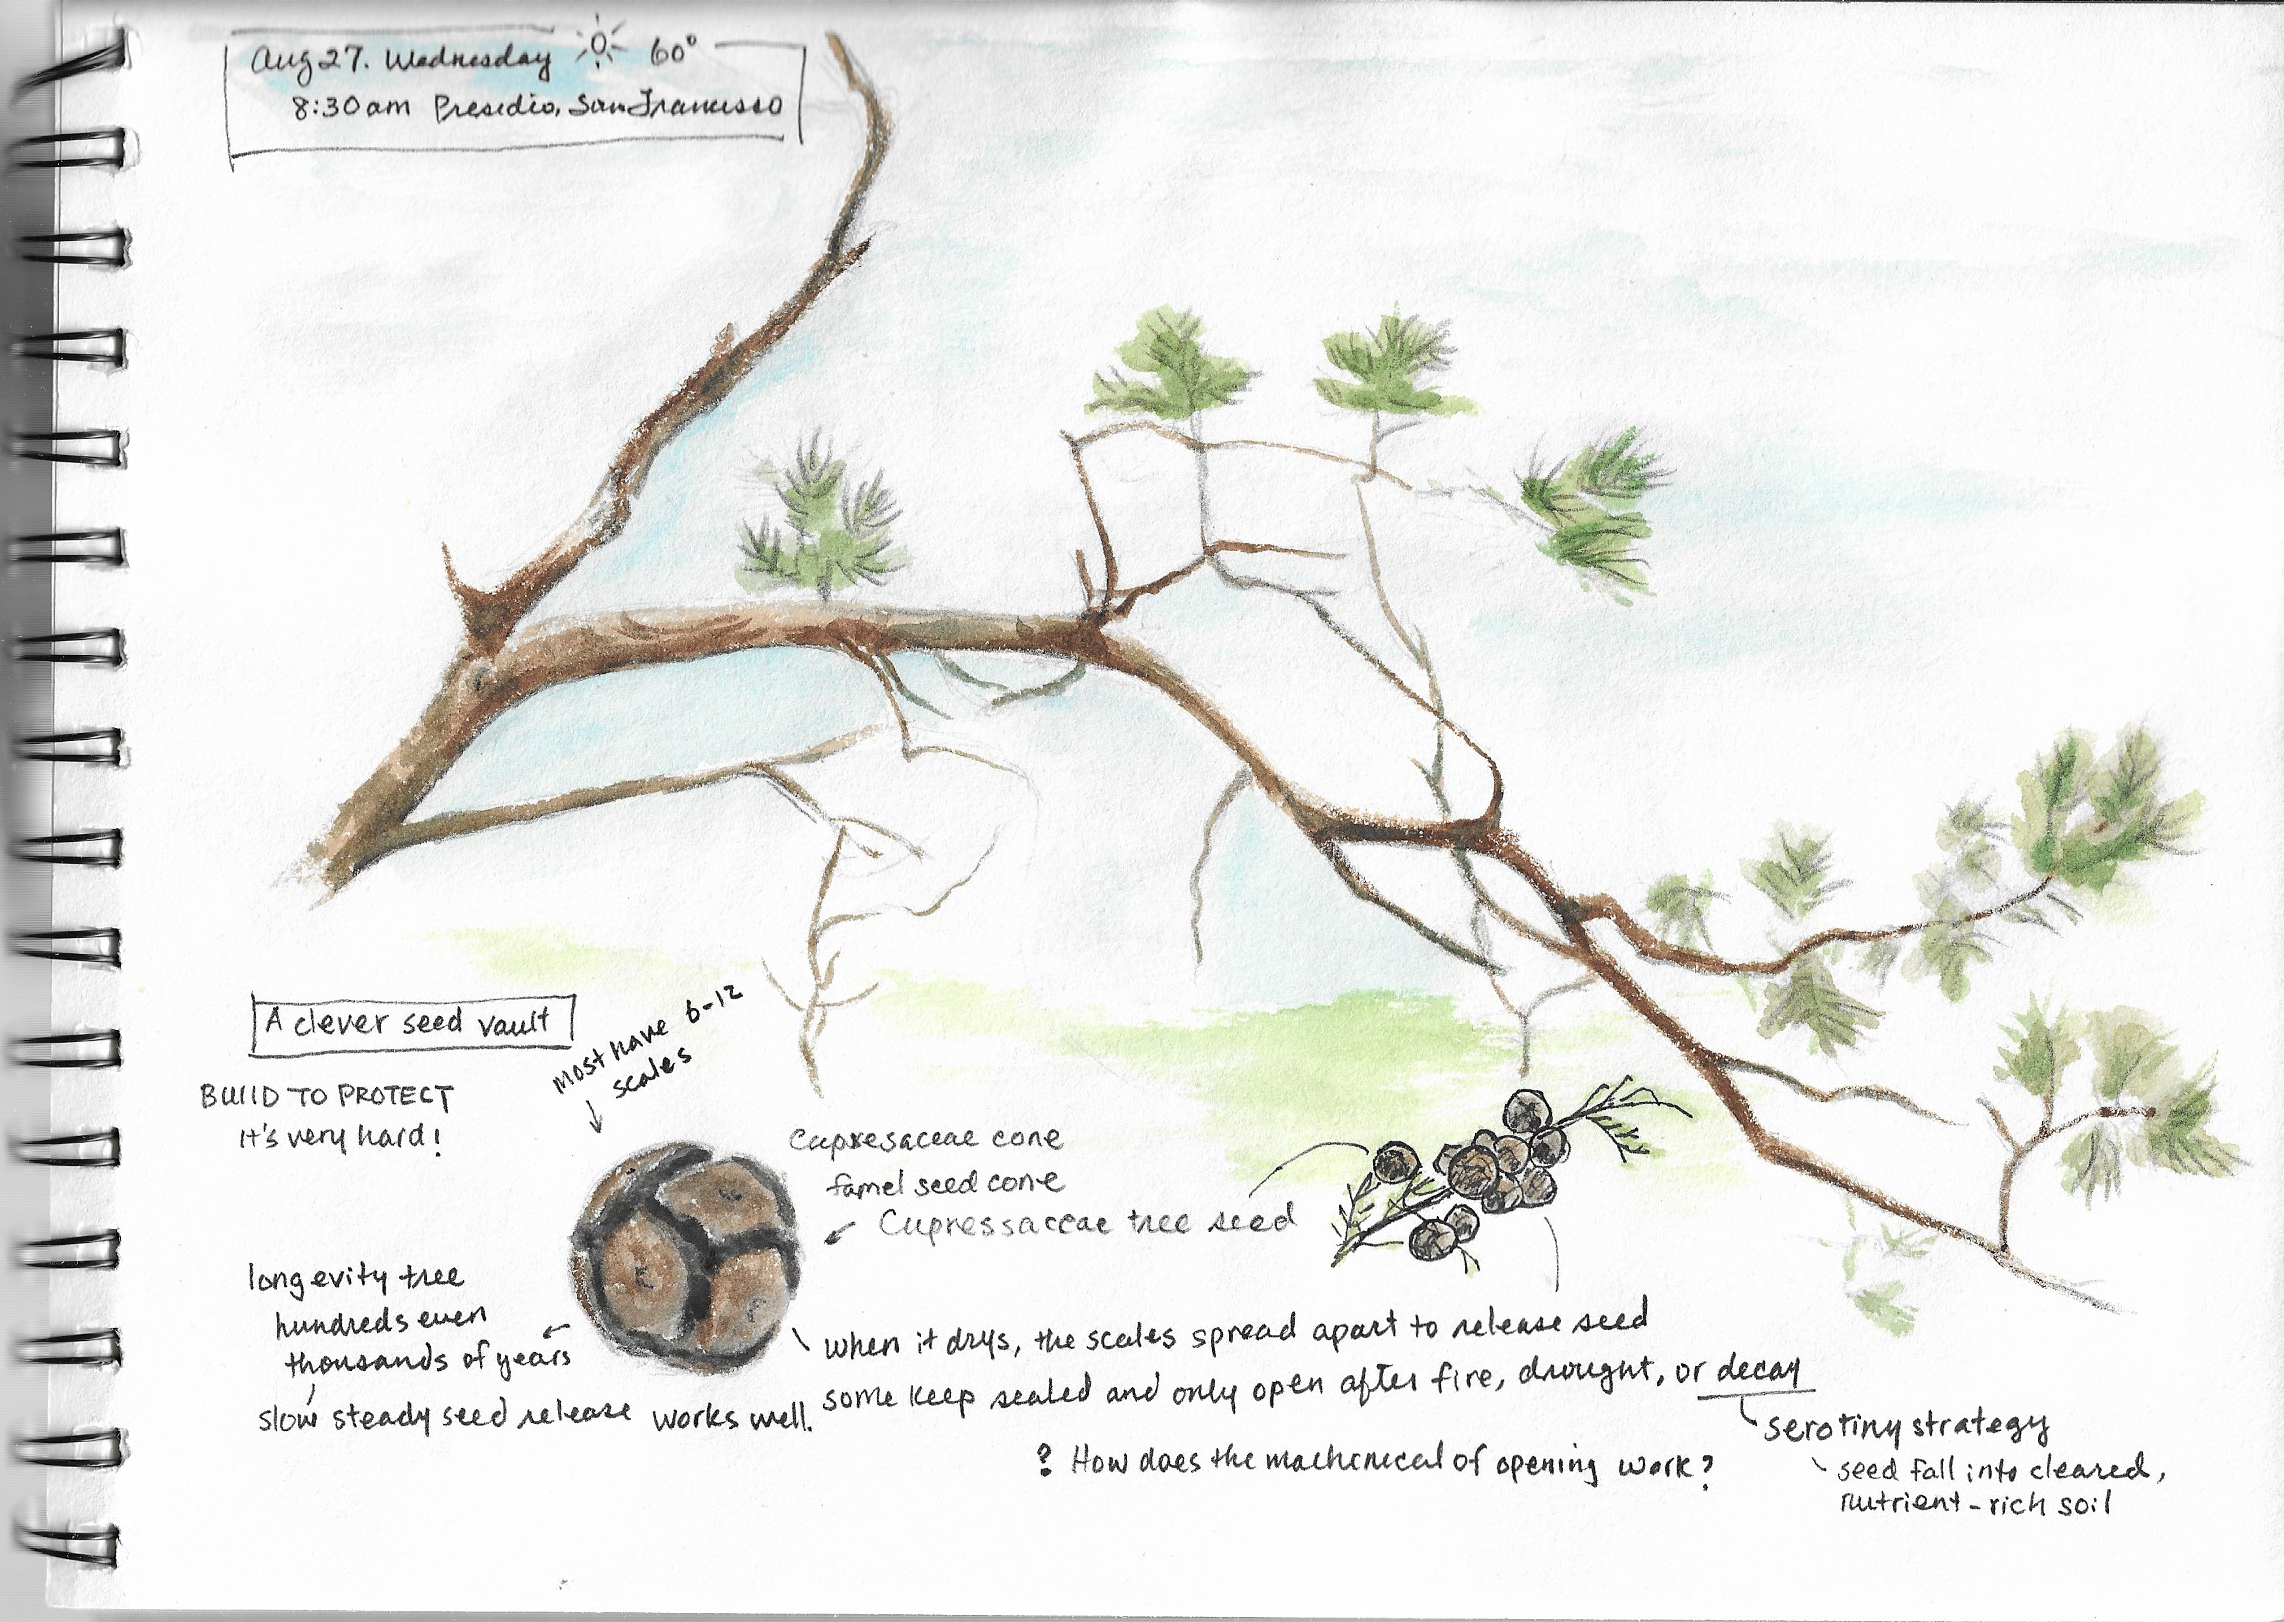 Aug 27. Wednesday 60°
8:30am Presidio, San Francisco
A clever seed vault
BUIlD TO PROTECT
it's very hard!
most have 6-12
scales
Cupresaceae cone
famel seed cone
Cupressaceae tree seed
longevity tree
hundreds even
thousands of years
slow steady seed release works well.
when it drys, the scales spread apart to release seed
some keep sealed and only open after fire, drought, or decay
serotiny strategy
seed fall into cleared,
nutrient-rich soil
? How does the machenecal of opening work?